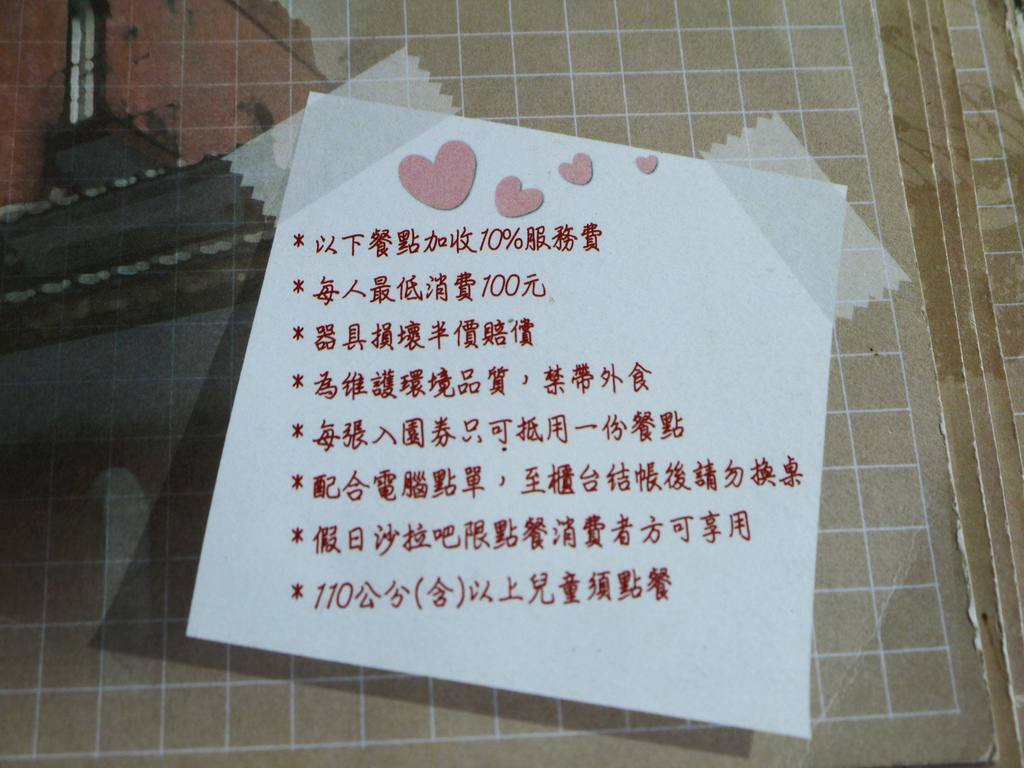 * 以下餐點加收10%服務費
* 每人最低消費100元
* 器具損壞半價賠償
* 為維護環境品質，禁帶外食
* 每張入園券只可抵用一份餐點
* 配合電腦點單，至櫃台結帳後請勿換桌
* 假日沙拉吧限點餐消費者方可享用
* 110公分(含)以上兒童須點餐